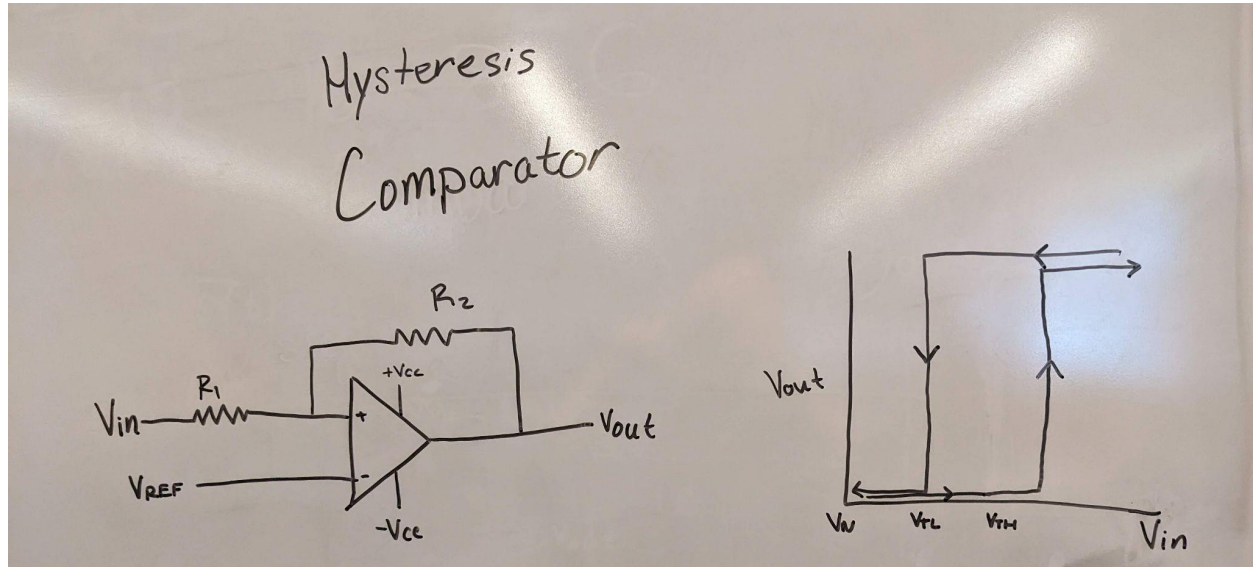 Hysteresis
Comparator
R2
+Vcc
R1
Vin
+
Vout
VREF
-
-Vcc
Vout
VN
VTL
VTH
Vin